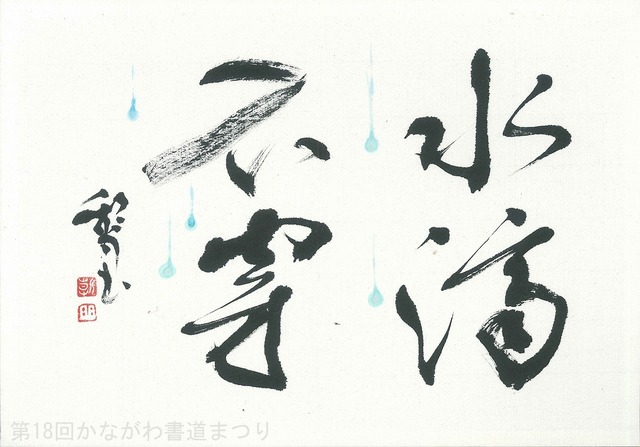 水滴
石穿
第18回かながわ書道まつり